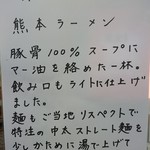 熊本ラーメン
豚骨100%スープに
マー油を絡めた一杯。
飲み口もライトに仕上げ
ました。
麺もご当地リスペクトで
特注の中太ストレート麺を
少しかために湯で上げて